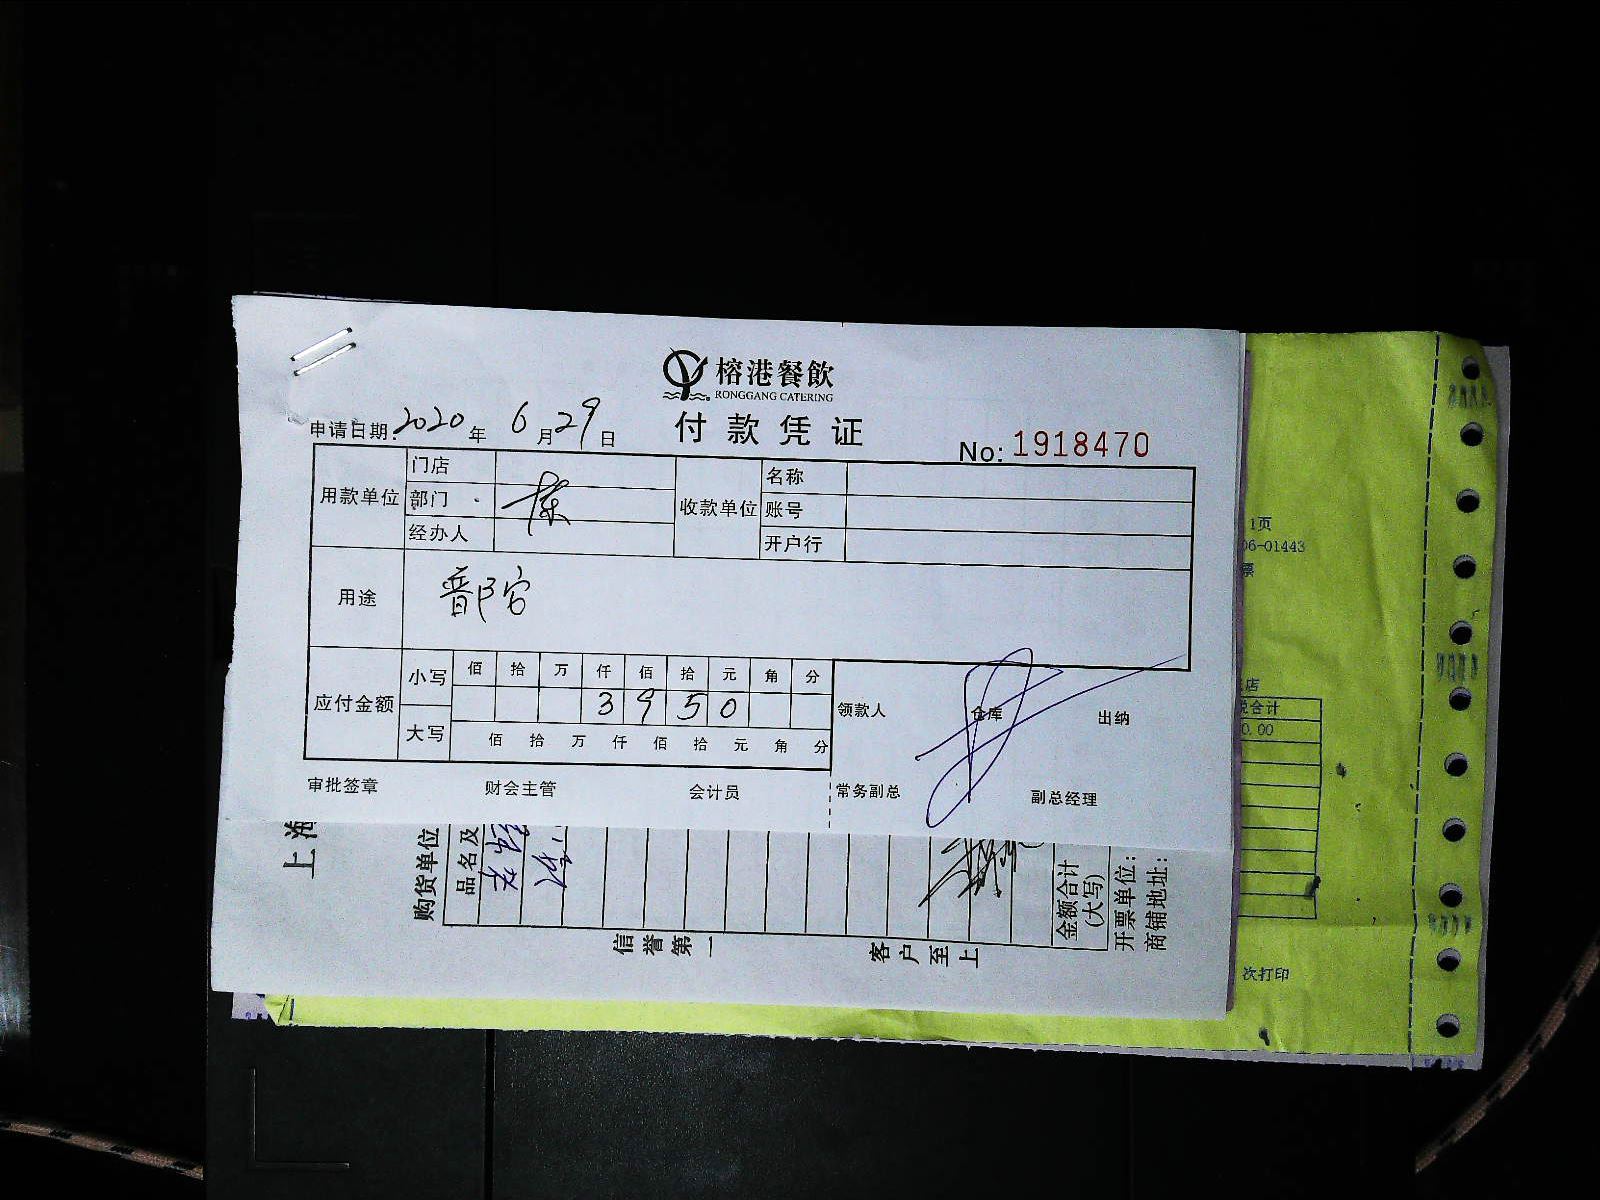 榕港餐飲
RONGGANG CATERING
付款凭证
申请日期: 2020 年 6 月 29 日
No: 1918470
用款单位 门店 收款单位 名称
部门 账号
经办人 开户行
用途 普陀
应付金额 小写 佰 拾 万 仟 佰 拾 元 角 分
3 9 5 0
大写 佰 拾 万 仟 佰 拾 元 角 分
领款人 仓库 出纳
审批签章 财会主管 会计员 常务副总 副总经理
上海
购货单位
品名及
金额合计
(大写)
开票单位:
商铺地址:
信誉第一 客户至上
1页
06-01443
票
店
税合计
0.00
次打印